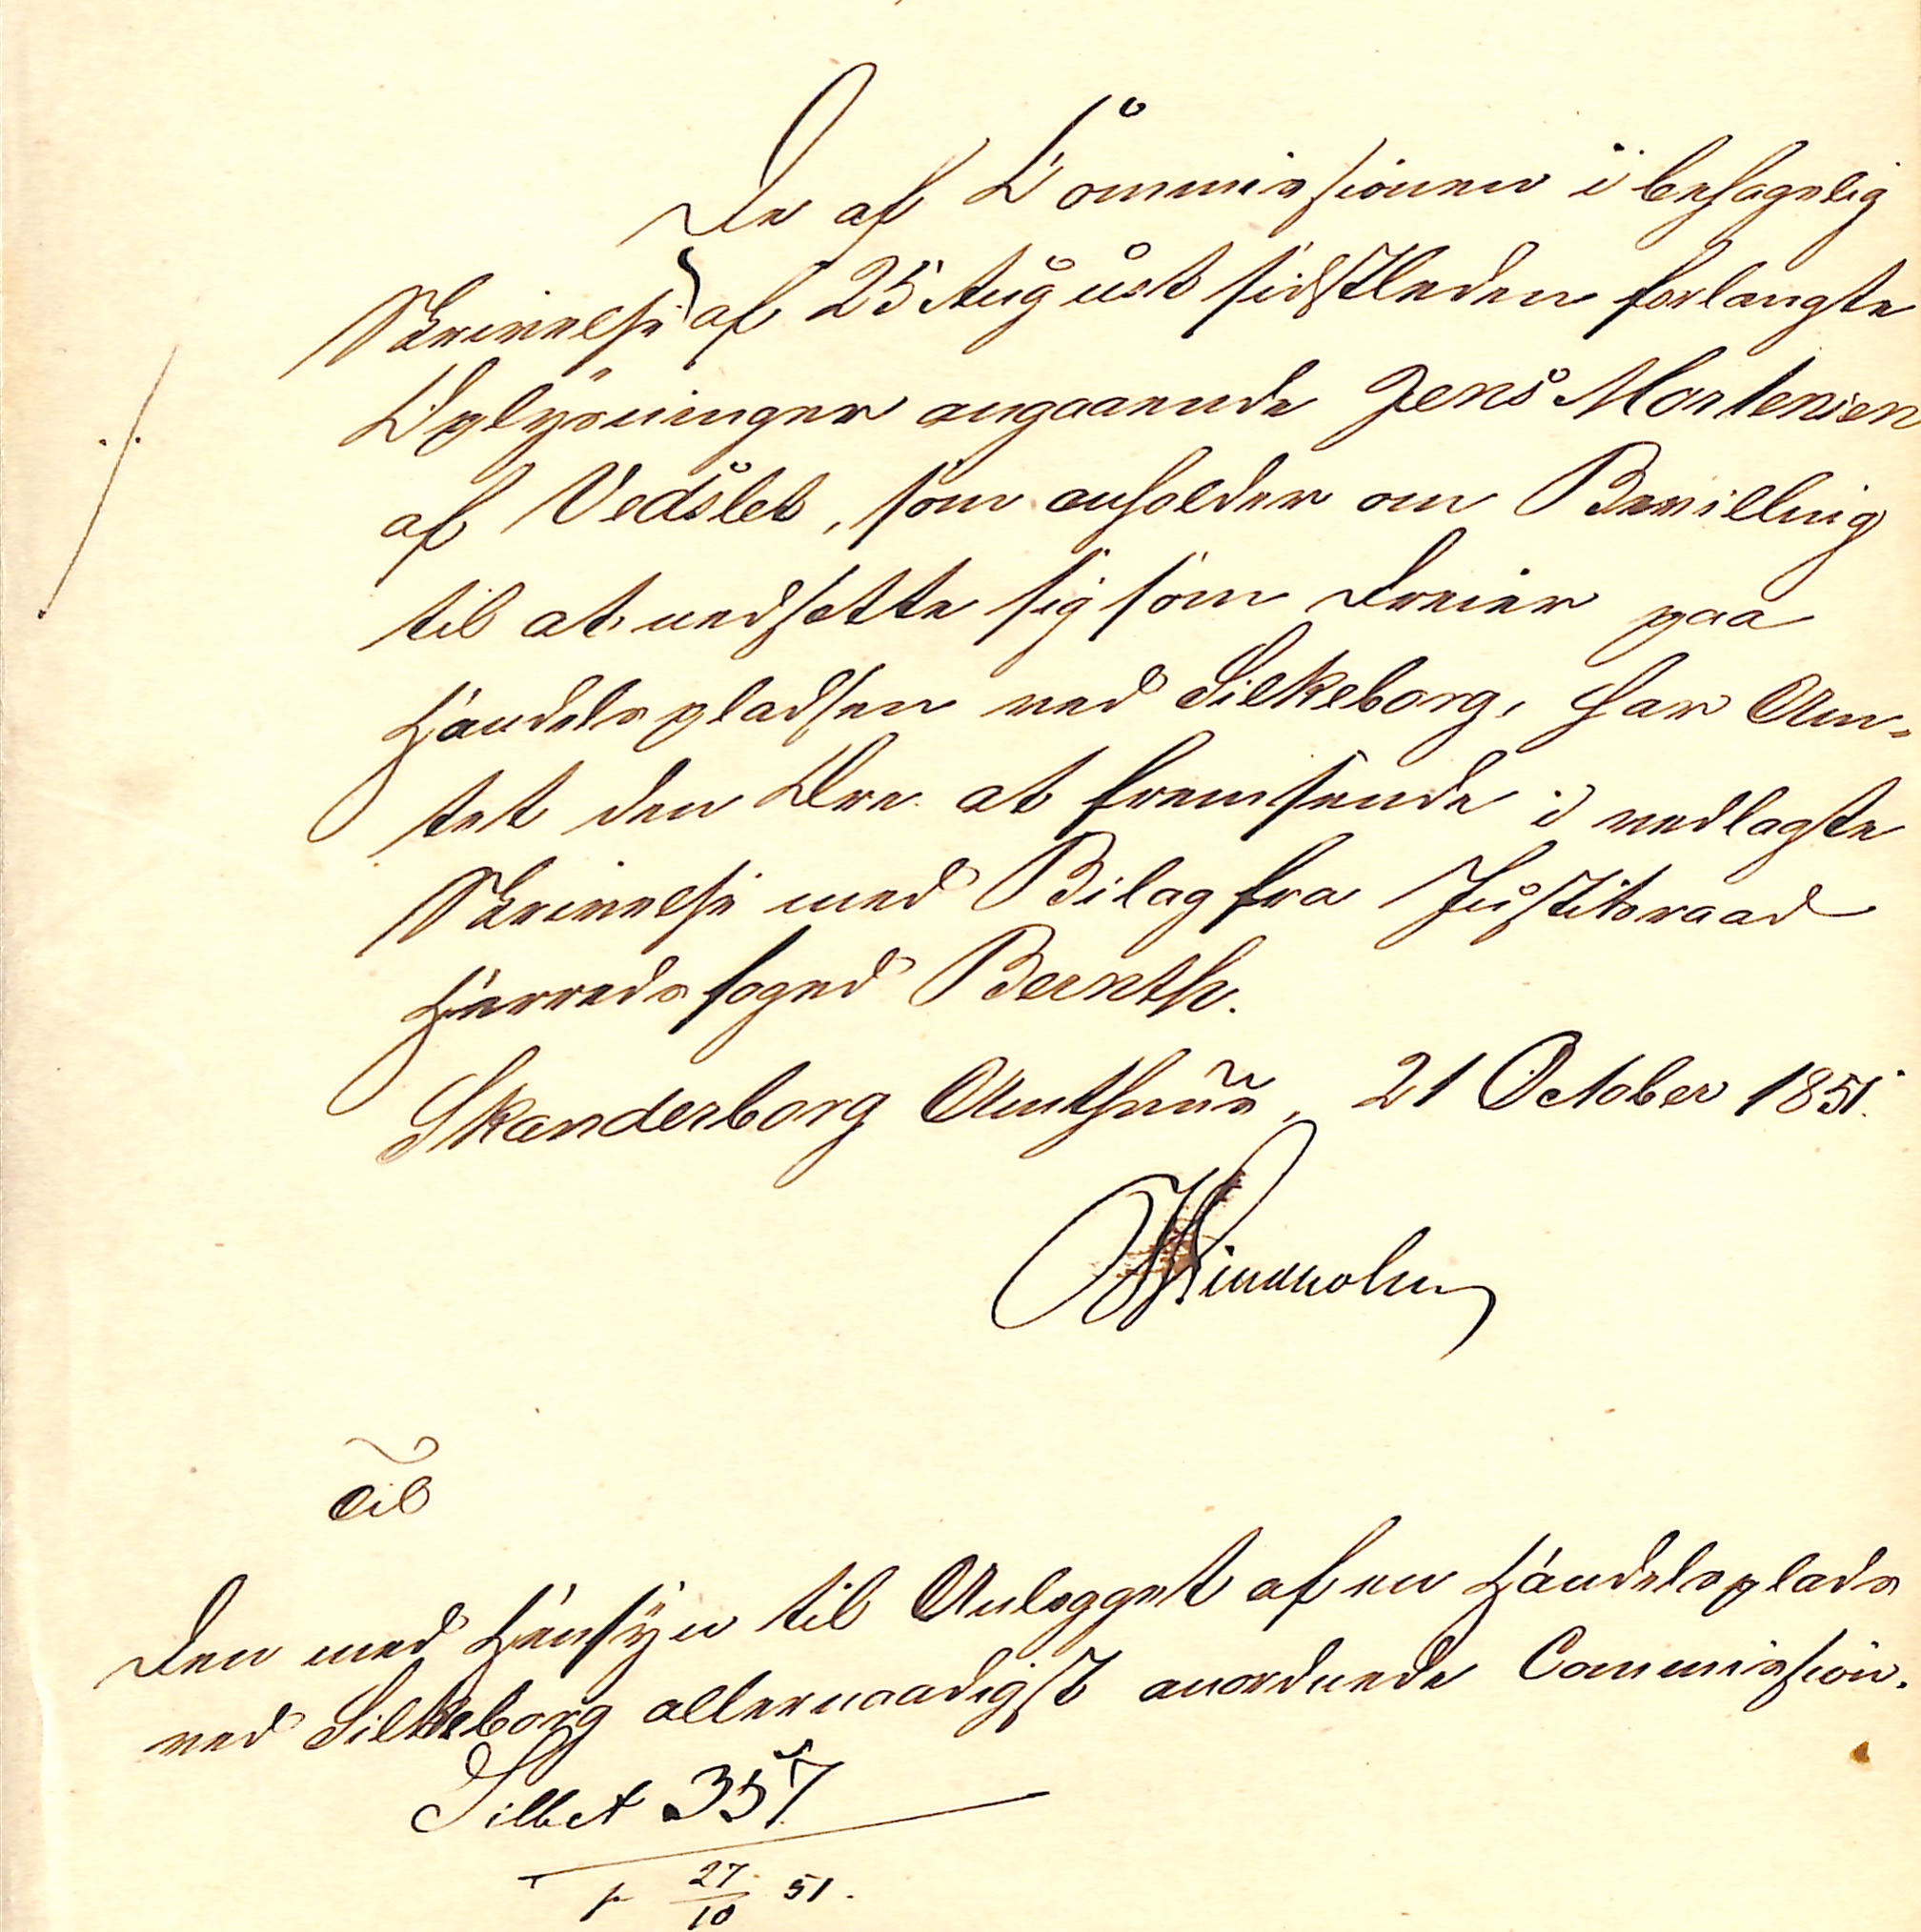 De af Commissionen i behagelig
Skrivelse af 25 August sidstleden forlangte
Oplysninger angaaende Jens Mortensen
af Vedslet, som anholder om Bevilling
til at nedsætte sig som Dreier paa
Handelspladsen ved Silkeborg, har Am-
tet den Ære at fremsende i vedlagte
Skrivelse med Bilag fra Justitsraad
Herredsfoged Bernth.
Skanderborg Amthuus, 21 October 1851.
Til
Den med Hensyn til Anlægget af en Handelsplads
ved Silkeborg allernaadigst anordnede Commission.
Silk A 357
27/10 51.